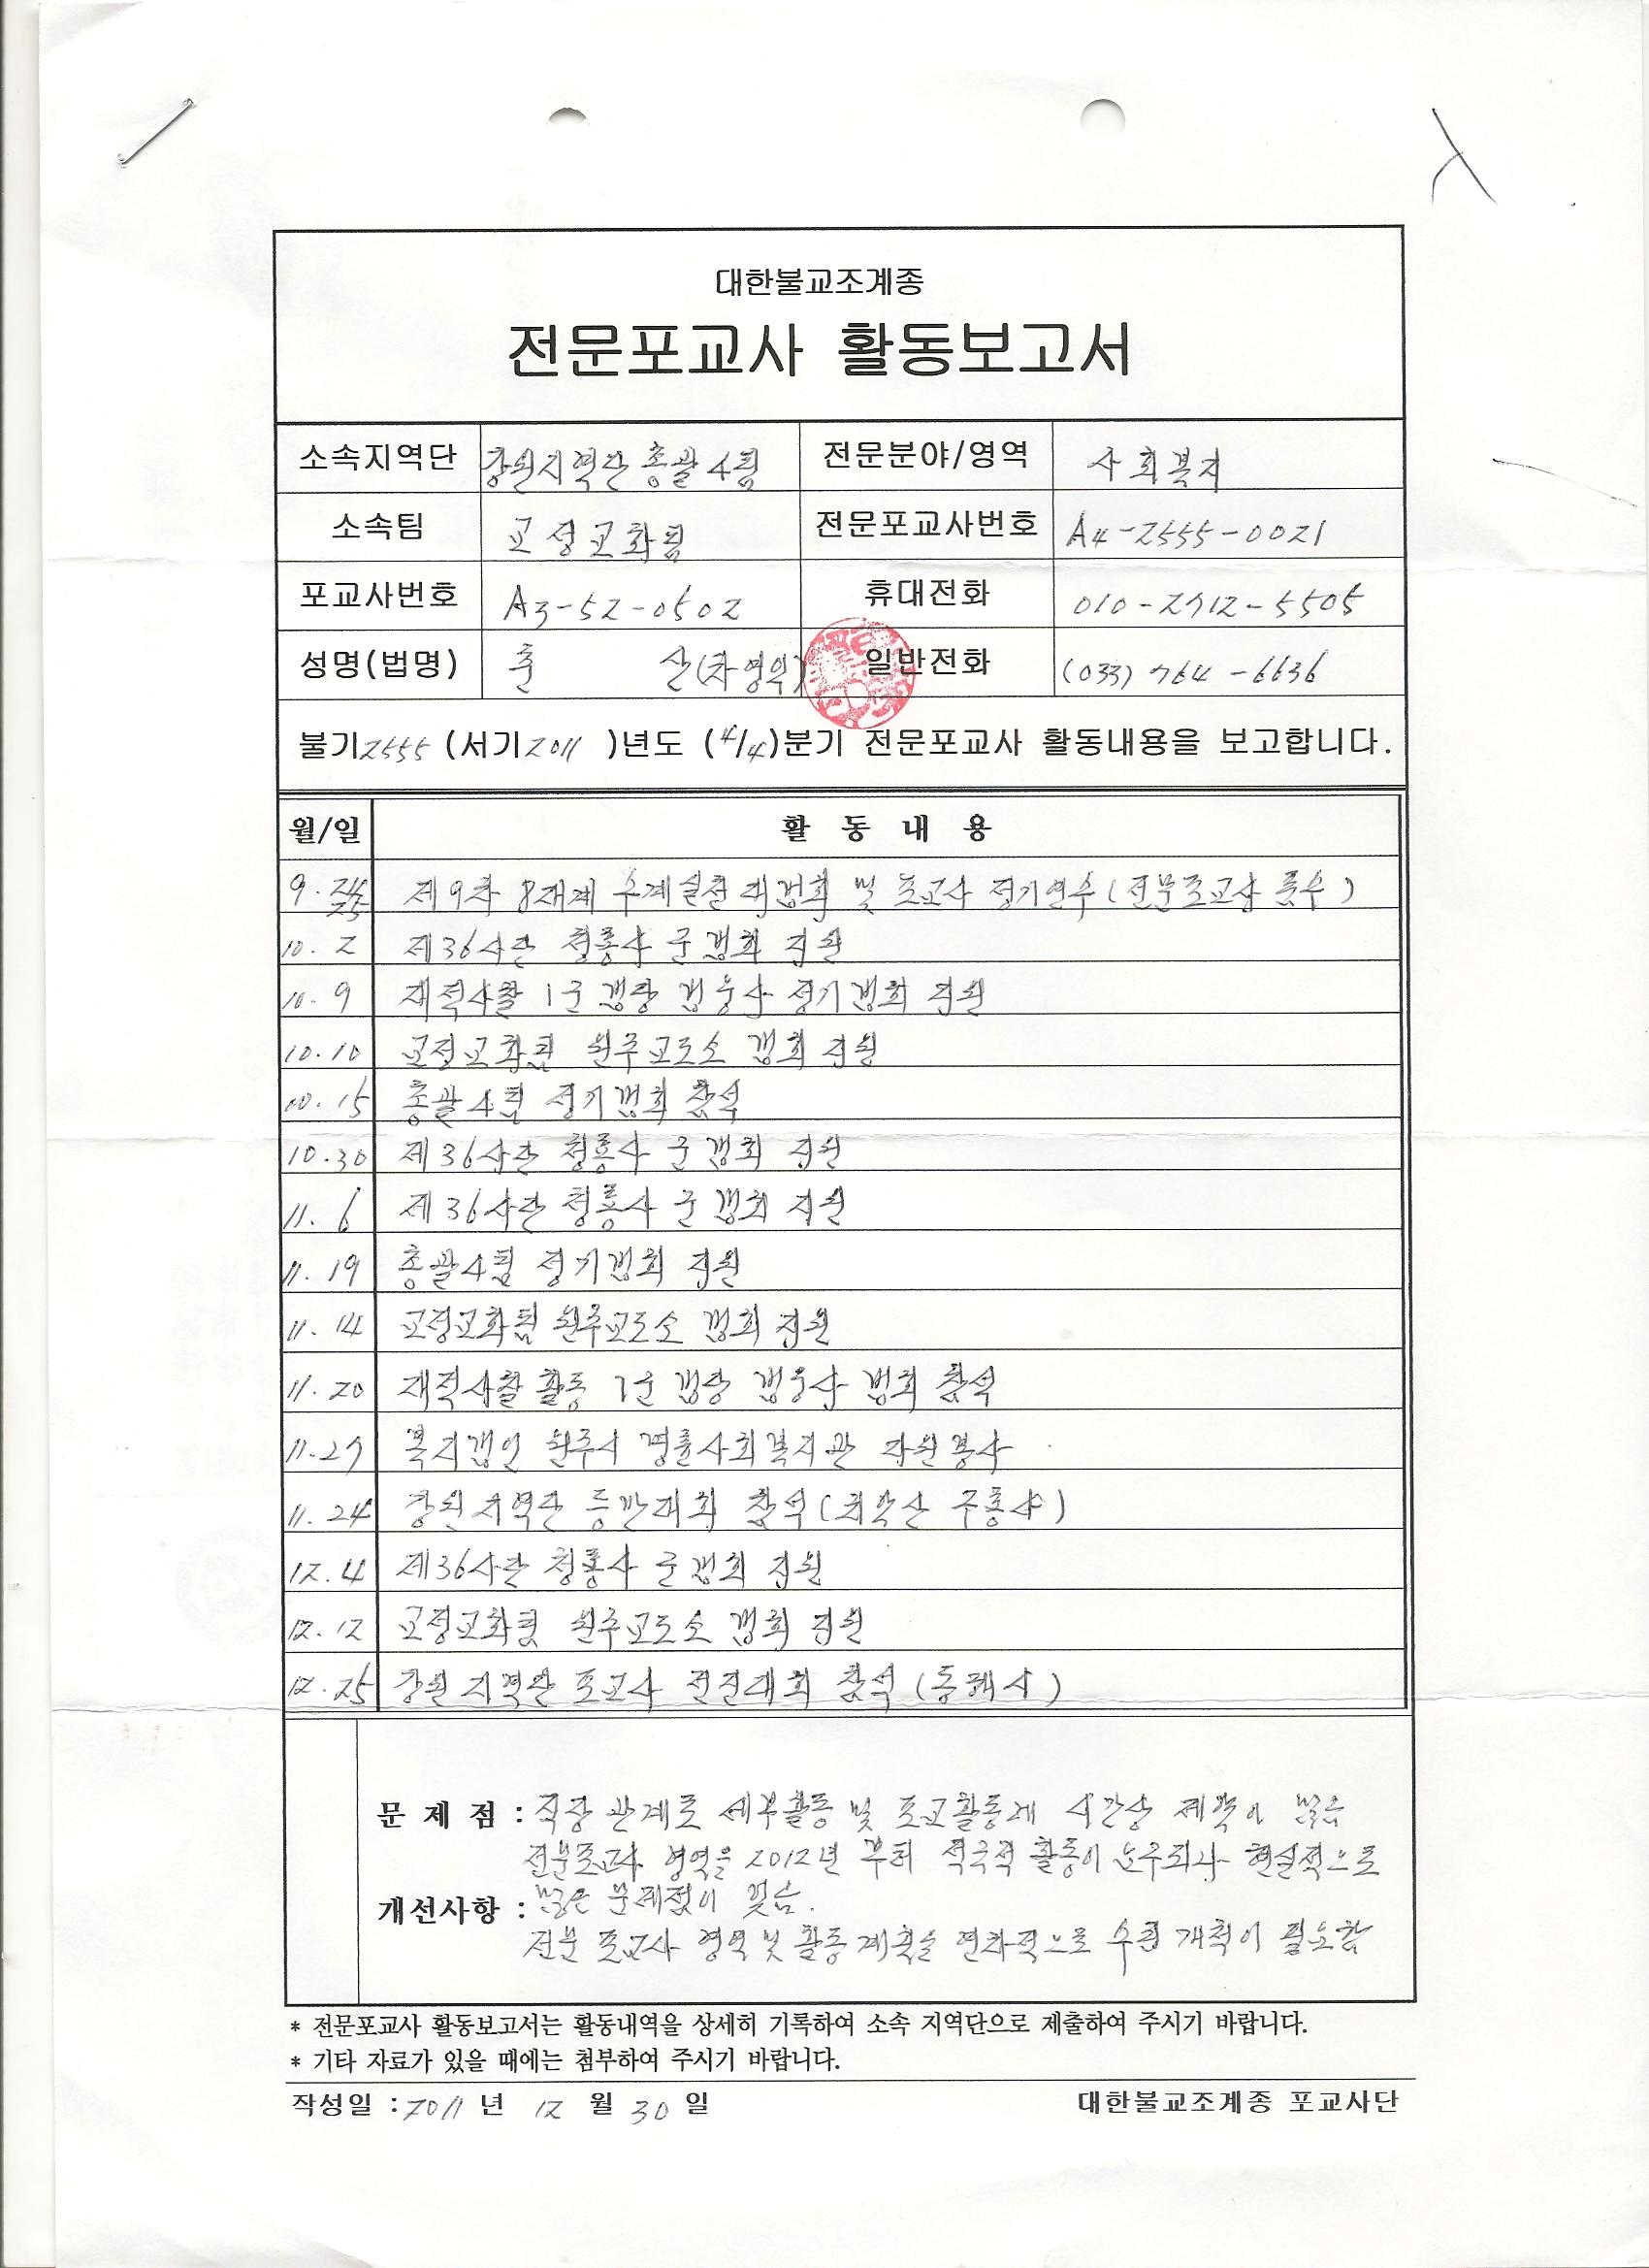 대한불교조계종
전문포교사 활동보고서
소속지역단 강원지역단 총괄4팀 전문분야/영역 사회복지
소속팀 교정교화팀 전문포교사번호 A4-2555-0021
포교사번호 A3-52-0502 휴대전화 010-2712-5505
성명(법명) 산(차영익) 일반전화 (033) 764-6636
불기2555 (서기2011 )년도 (4/4)분기 전문포교사 활동내용을 보고합니다.
월/일 활 동 내 용
9. 24 25 제9차 8재계 수계실천 대법회 및 포교사 정기연수 (전문포교사 품수)
10. 2 제36사단 청룡사 군법회 지원
10. 9 재적사찰 1군 법당 법웅사 정기법회 지원
10. 10 교정교화팀 원주교도소 법회 지원
10. 15 총괄4팀 정기법회 참석
10. 30 제36사단 청룡사 군법회 지원
11. 6 제36사단 청룡사 군법회 지원
11. 19 총괄4팀 정기법회 지원
11. 14 교정교화팀 원주교도소 법회 지원
11. 20 재적사찰 활동 1군 법당 법웅사 법회 참석
11. 27 복지법인 원주시 명륜사회복지관 자원봉사
11. 24 강원지역단 등반대회 참석 (치악산 구룡사)
12. 4 제36사단 청룡사 군법회 지원
12. 12 교정교화팀 원주교도소 법회 지원
12. 25 강원지역단 포교사 전진대회 참석 (동해시)
문 제 점 : 직장 관계로 세부활동 및 포교활동에 시간상 제약이 많음
전문포교사 영역을 2012년 부터 적극적 활동이 현실적으로
개선사항 : 많은 문제점이 있음.
전문포교사 영역 및 활동계획을 연차적으로 수립 개척이 필요함
* 전문포교사 활동보고서는 활동내역을 상세히 기록하여 소속 지역단으로 제출하여 주시기 바랍니다.
* 기타 자료가 있을 때에는 첨부하여 주시기 바랍니다.
작성일 : 2011 년 12 월 30 일 대한불교조계종 포교사단